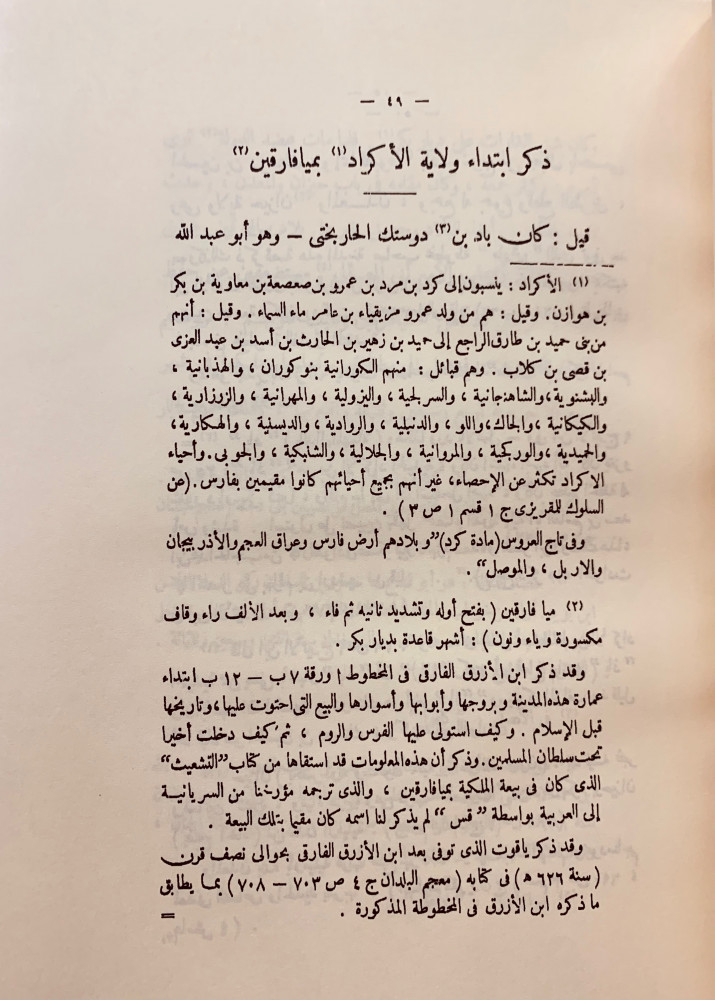 — ٤٩ —
ذكر ابتداء ولاية الأكراد(١) بميافارقين(٢)
قيل : كان باد بن(٣) دوستك الحاربختى — وهو أبو عبد الله
(١) الأكراد : ينسبون إلى كرد بن مرد بن عمرو بن صعصعة بن معاوية بن بكر
بن هوازن . وقيل : هم من ولد عمرو مزيقياء بن عامر ماء السماء . وقيل : أنهم
من بنى حميد بن طارق الراجع إلى حميد بن زهير بن الحارث بن أسد بن عبد العزى
بن قصى بن كلاب . وهم قبائل : منهم الكورانية بنو كوران ، والهذبانية ،
والبشنوية ، والشاهنجانية ، والسرلجية ، واليزولية ، والمهرانية ، والزرزارية ،
والكيكانية ، والجاك ، واللو ، والدنبلية ، والروادية ، والديسنية ، والهكارية ،
والحميدية ، والوركجية ، والمروانية ، والجلالية ، والشنبكية ، والجوبى . وأحياء
الاكراد تكثر عن الإحصاء ، غير أنهم بجميع أحيائهم كانوا مقيمين بفارس . (عن
السلوك للمقريزى ج ١ قسم ١ ص ٣ ) .
وفى تاج العروس (مادة كرد) ”وبلادهم أرض فارس وعراق العجم والأذر بيجان
والاربل ، والموصل“ .
(٢) ميا فارقين ( بفتح أوله وتشديد ثانيه ثم فاء ، وبعد الألف راء وقاف
مكسورة وياء ونون ) : أشهر قاعدة بديار بكر .
وقد ذكر ابن الأزرق الفارقى فى المخطوط أ ورقة ٧ ب — ١٢ ب ابتداء
عمارة هذه المدينة وبروجها وأبوابها وأسوارها والبيع التى احتوت عليها ، وتاريخها
قبل الإسلام . وكيف استولى عليها الفرس والروم ، ثم كيف دخلت أخيرا
تحت سلطان المسلمين . وذكر أن هذه المعلومات قد استقاها من كتاب ”التشعيث“
الذى كان فى بيعة الملكية بميافارقين ، والذى ترجمه مؤرخنا من السريانية
إلى العربية بواسطة ”قس“ لم يذكر لنا اسمه كان مقيما بتلك البيعة .
وقد ذكر ياقوت الذى توفى بعد ابن الأزرق الفارقى بحوالى نصف قرن
( سنة ٦٢٦ ه ) فى كتابه ( معجم البلدان ج ٤ ص ٧٠٣ — ٧٠٨ ) بما يطابق
ما ذكره ابن الأزرق فى المخطوطة المذكورة .
=